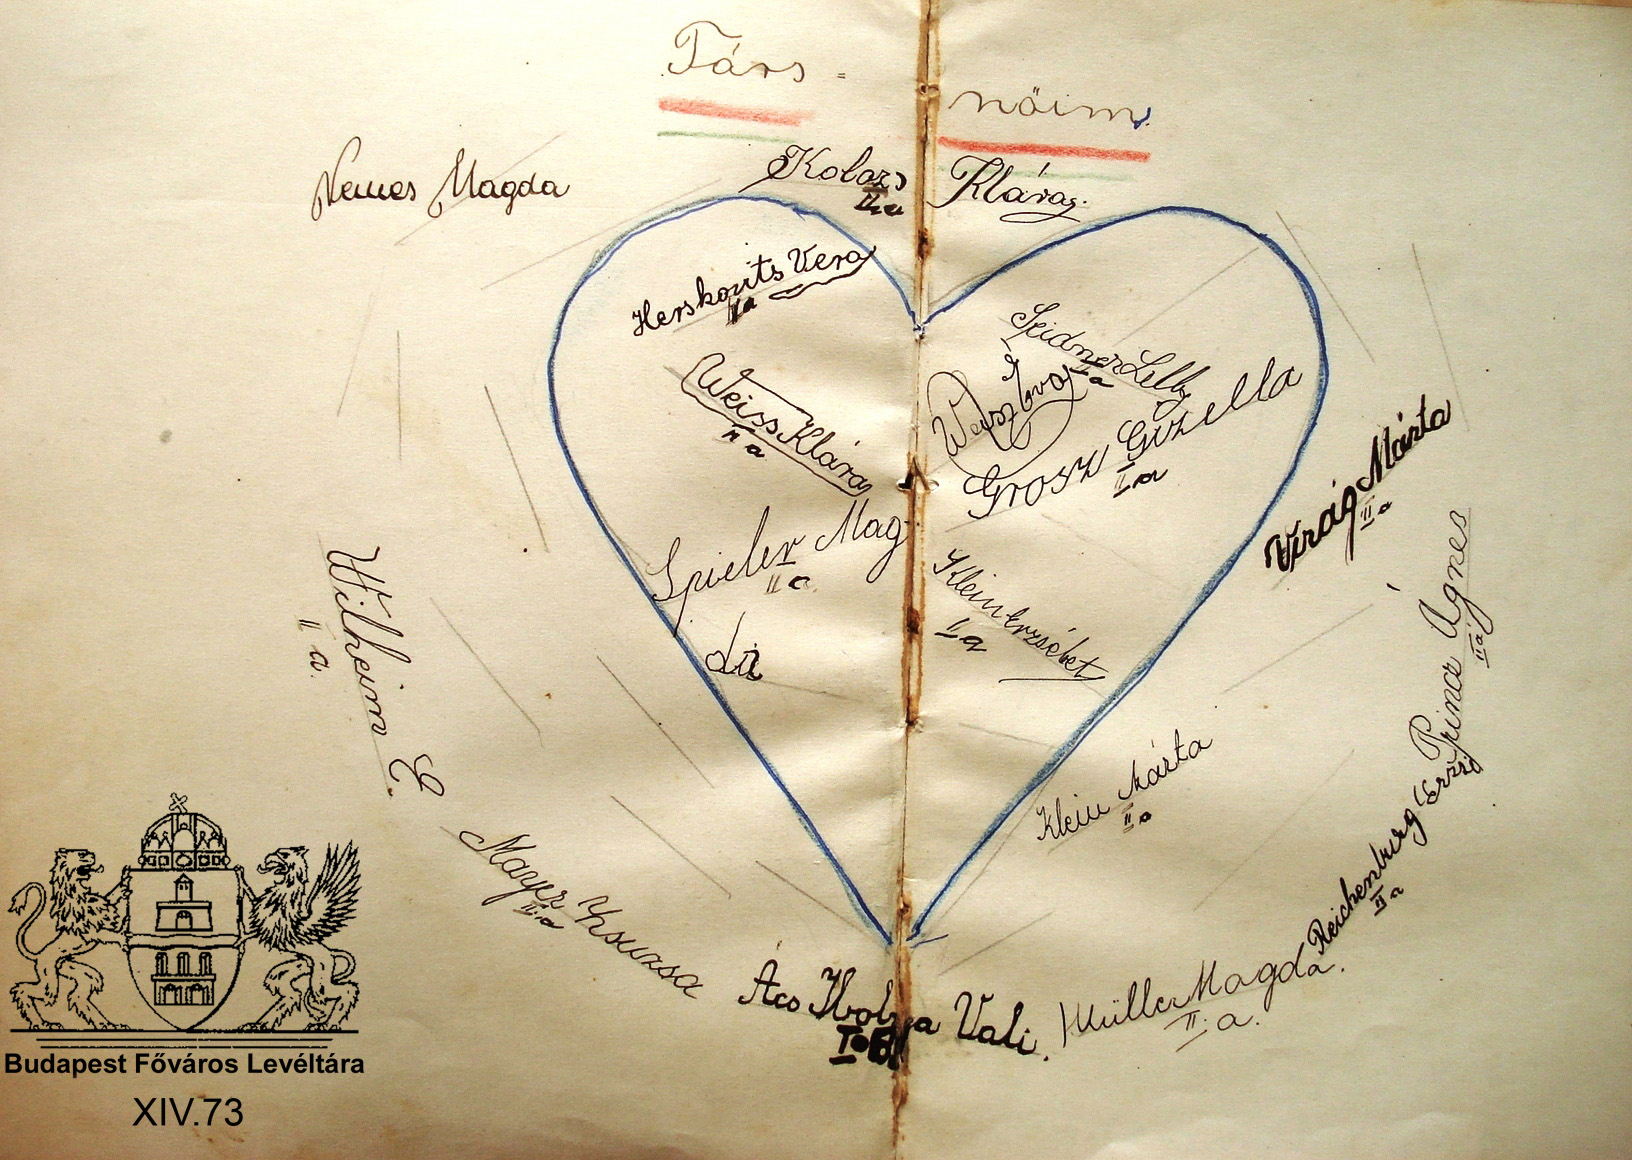 Társ-
nőim.
Nemes Magda
Kolozs Klára
II.a
Herskovits Vera
II a
Seidner Lilly
II a
Weiss Klára
II a
Weisz Éva
Grosz Gizella
II.a
Virág Márta
II a
Spieler Mag-
II a.
da
Klein Erzsébet
II a
Wilheim E.
II a.
Prinz Ágnes
II a
Klein Márta
II a
Reichenburg Erzsi
II a
Mayer Zsuzsa
II.a
Ács Ibolya Vali.
Müller Magda.
II. a.
Budapest Főváros Levéltára
XIV.73